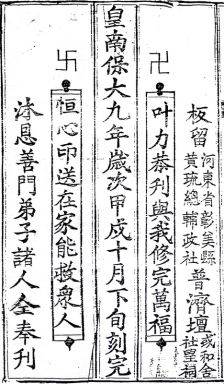 板留河東省彰美縣
黃琉總輔政社
普濟壇或和舍
社呈祠
卍
叶力恭刊與我修完萬福
皇南保大九年歲次甲戌十月下旬刻完
卐
恒心印送在家能救眾人
沐恩善門弟子諸人仝奉刊